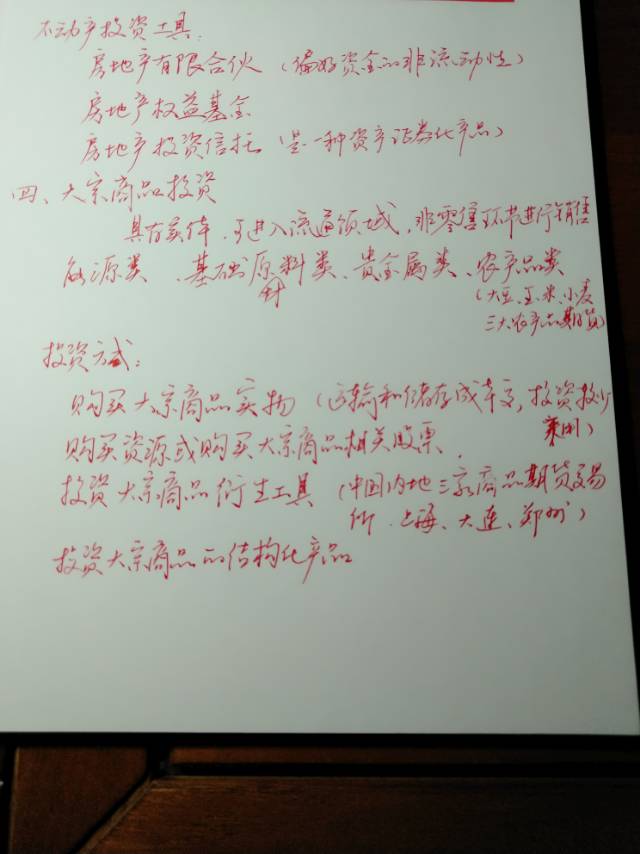 不动产投资工具:
房地产有限合伙 (偏好资金的非流动性)
房地产权益基金
房地产投资信托 (是一种资产证券化产品)
四、大宗商品投资
具有实体,可进入流通领域,非零售环节进行销售
能源类、基础原料类、贵金属类、农产品类
(大豆、玉米、小麦
三大农产品期货)
投资方式:
购买大宗商品实物 (运输和储存成本高,投资较少
采用)
购买资源或购买大宗商品相关股票
投资大宗商品衍生工具 (中国内地三家商品期货交易
所 上海、大连、郑州)
投资大宗商品的结构化产品